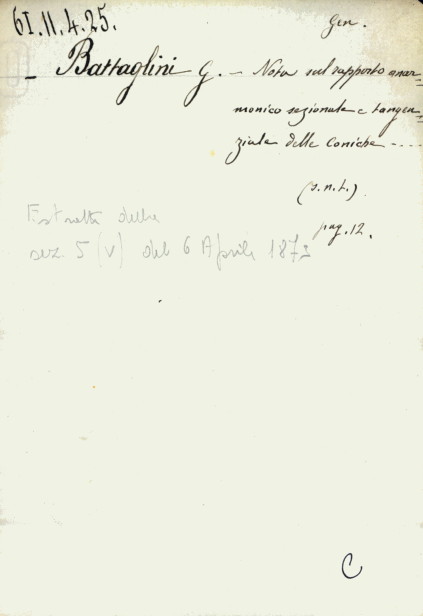 61.11.4.25.
Gen.
- Battaglini G. - Nota sul rapporto anar=
monico sezionale e tangen=
ziale delle coniche ----
(s.n.t.)
pag. 12.
Estratto della
sez. 5 (V) del 6 Aprile 1873
C